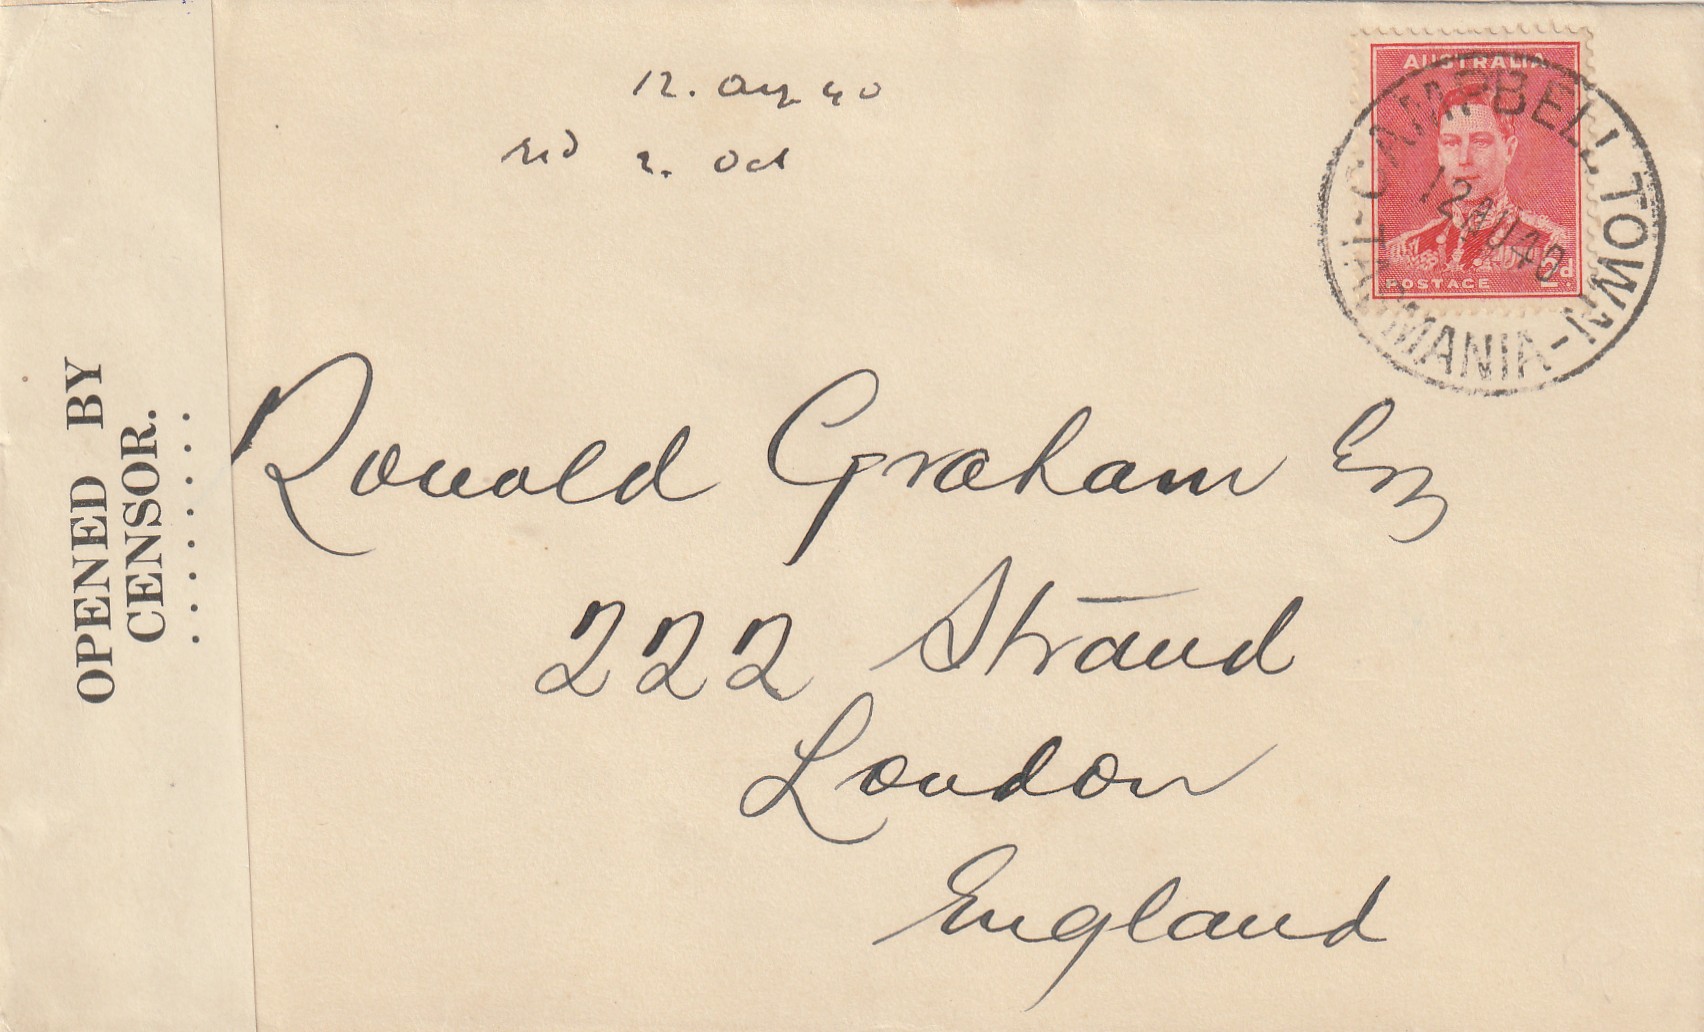 12. Aug. 40
red 2. Oct
AUSTRALIA
POSTAGE
2d
CAMPBELL TOWN
12 AU 40
-TASMANIA-
OPENED BY
CENSOR.
Ronald Graham Esq
222 Strand
London
England